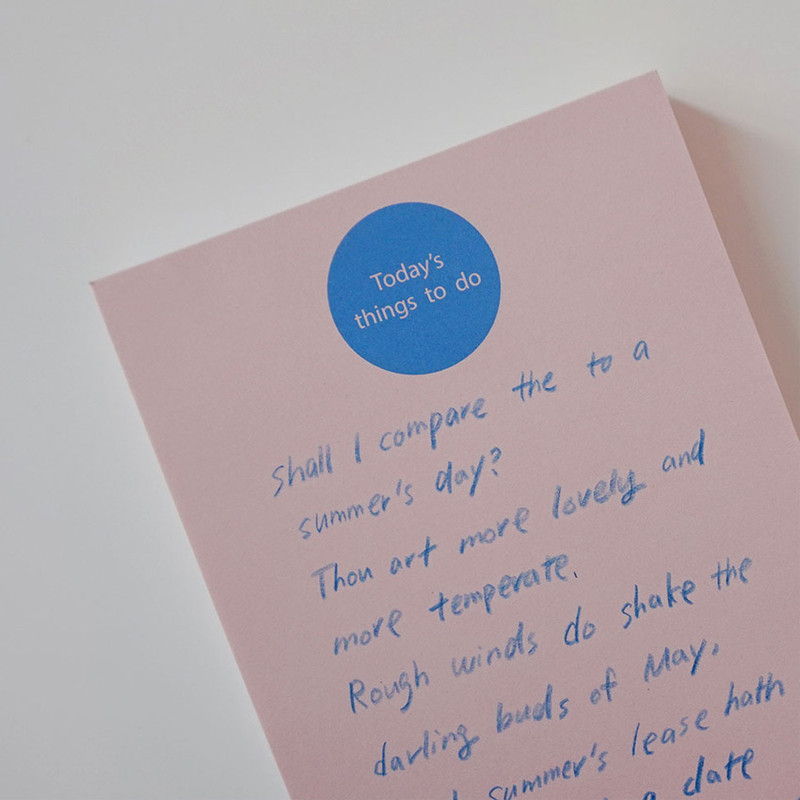 Today's
things to do
Shall I compare the to a
summer's day?
Thou art more lovely and
more temperate.
Rough winds do shake the
darling buds of May,
summer's lease hath
a date